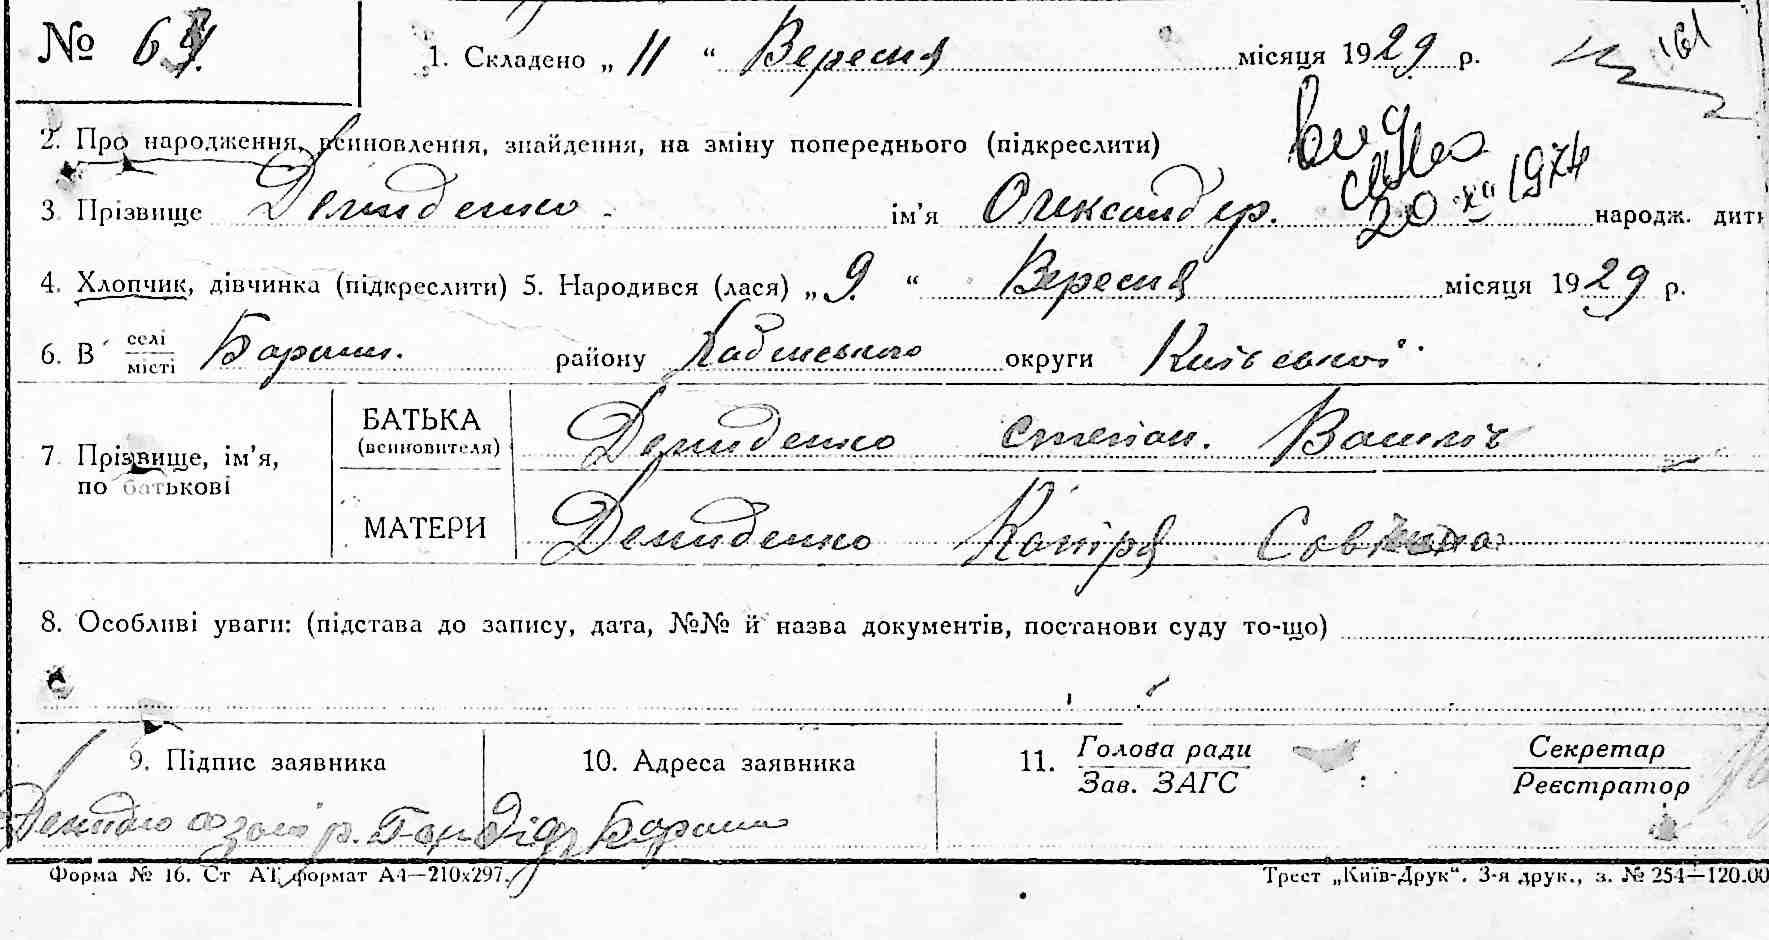 № 64. 1. Складено „ 11 “ Вересня місяця 1929 р. 161
2. Про народження, всиновлення, знайдення, на зміну попереднього (підкреслити)
3 Прізвище Демиденко ім'я Олександер. народж. дит
20 XII 1974
4. Хлопчик, дівчинка (підкреслити) 5. Народився (лася) „ 9. “ Вересня місяця 1929 р.
6. В селі місті Бараши. району округи Київської
7 Прізвище, ім'я, по батькові
БАТЬКА (всиновителя) Демиденко Степан. Василіч
МАТЕРИ Демиденко Катіря
8. Особливі уваги: (підстава до запису, дата, №№ й назва документів, постанови суду то-що)
9. Підпис заявника 10. Адреса заявника 11. Голова ради Секретар
Зав. ЗАГС : Реєстратор
Бараши
Форма № 16. Ст АТ, формат А4—210х297. Трест „Київ-Друк“. 3-я друк., з. № 254—120.00